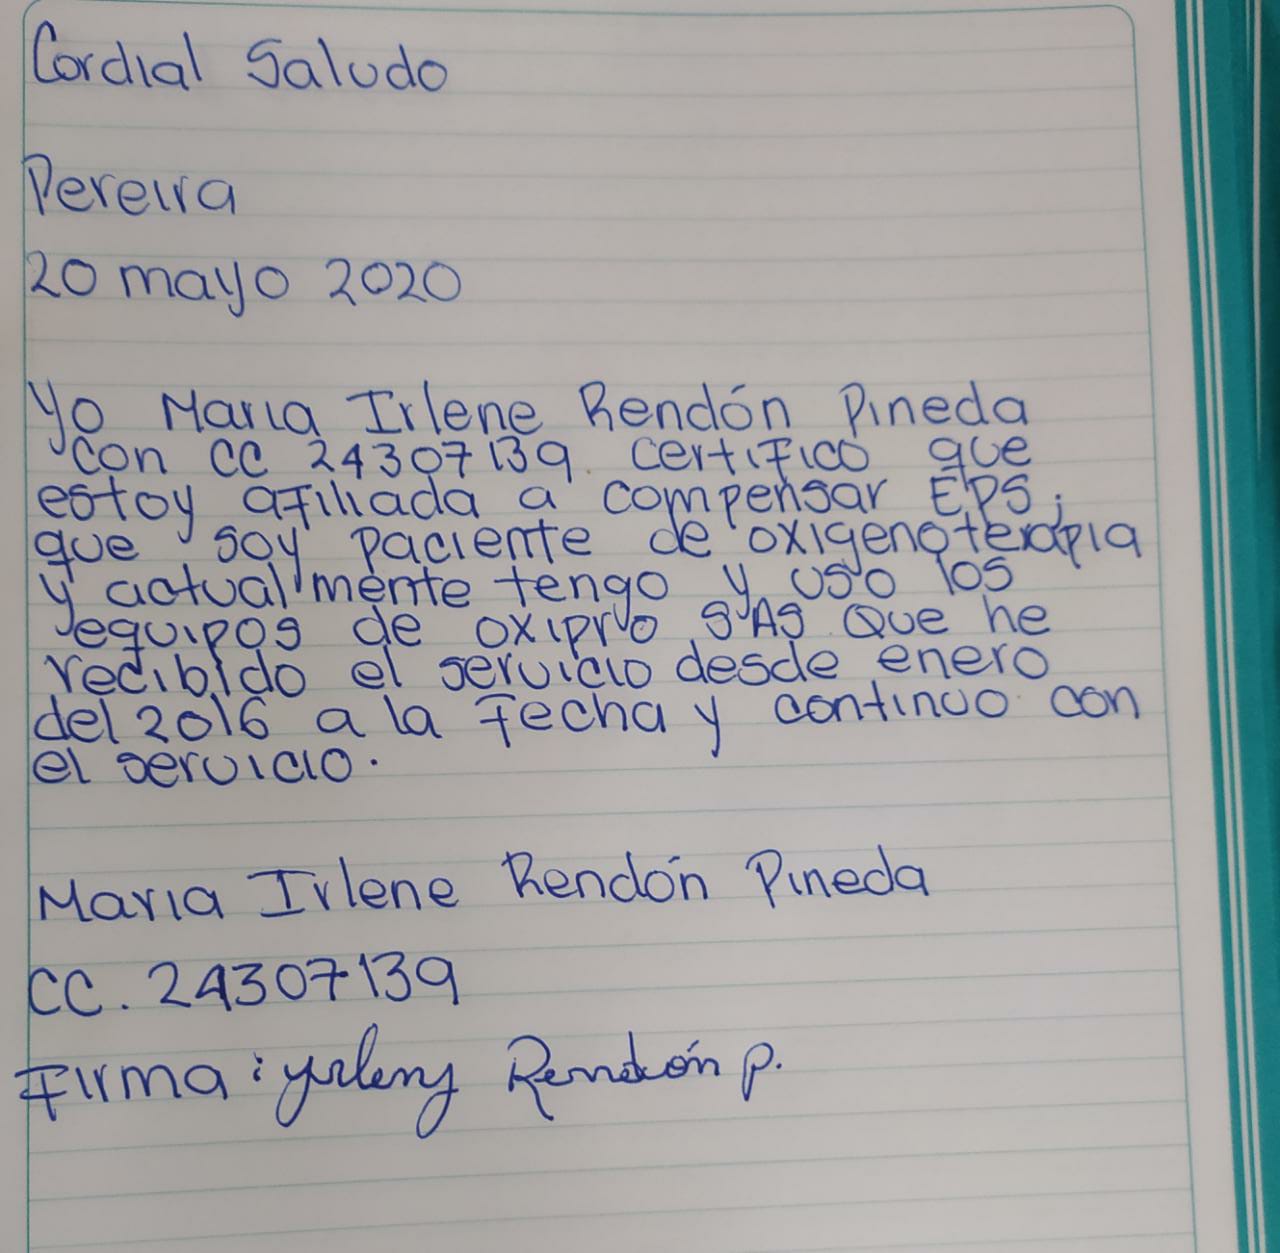 Cordial Saludo
Pereira
20 mayo 2020
Yo Maria Irlene Rendón Pineda
con CC 24307139. certifico que
estoy afiliada a compensar EPS;
que soy paciente de oxigenoterapia
y actualmente tengo y uso los
equipos de oxipro SAS Que he
recibido el servicio desde enero
del 2016 a la fecha y continuo con
el servicio.
Maria Irlene Rendón Pineda
CC. 24307139
Firma: yrleny Rendón p.